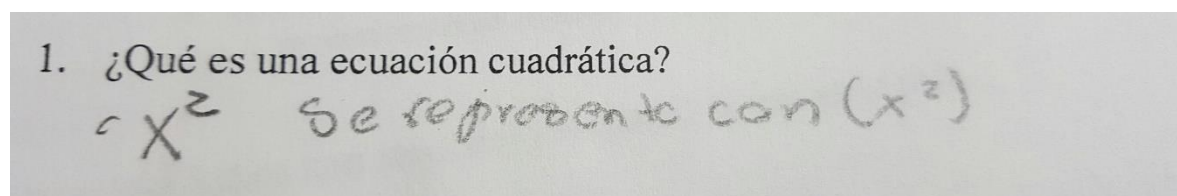 1. ¿Qué es una ecuación cuadrática?
x² Se representa con (x²)